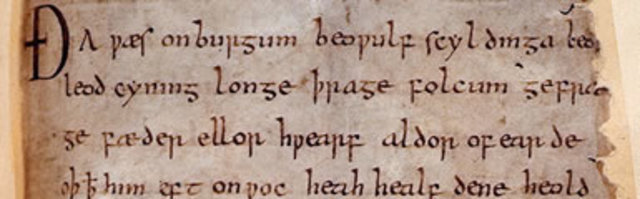 ÐA ƿæs onburgum beoƿulf scyldinga beo
leod cyning longe þrage folcum gefræ
ge fæder ellor hƿearf aldor ofearde
oþ þ̵ him eft onƿoc heah healf dene heold